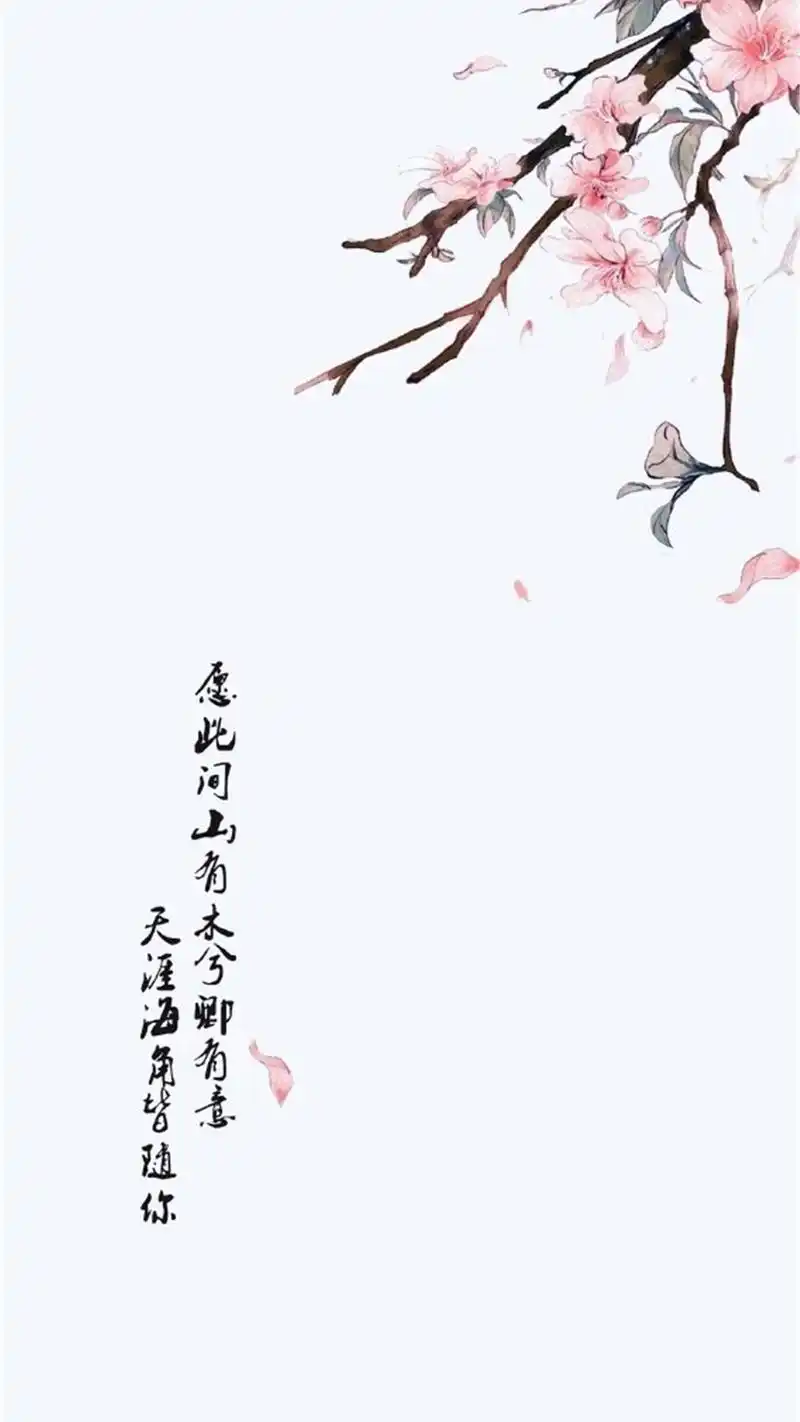 愿此间山有木兮卿有意
天涯海角皆随你